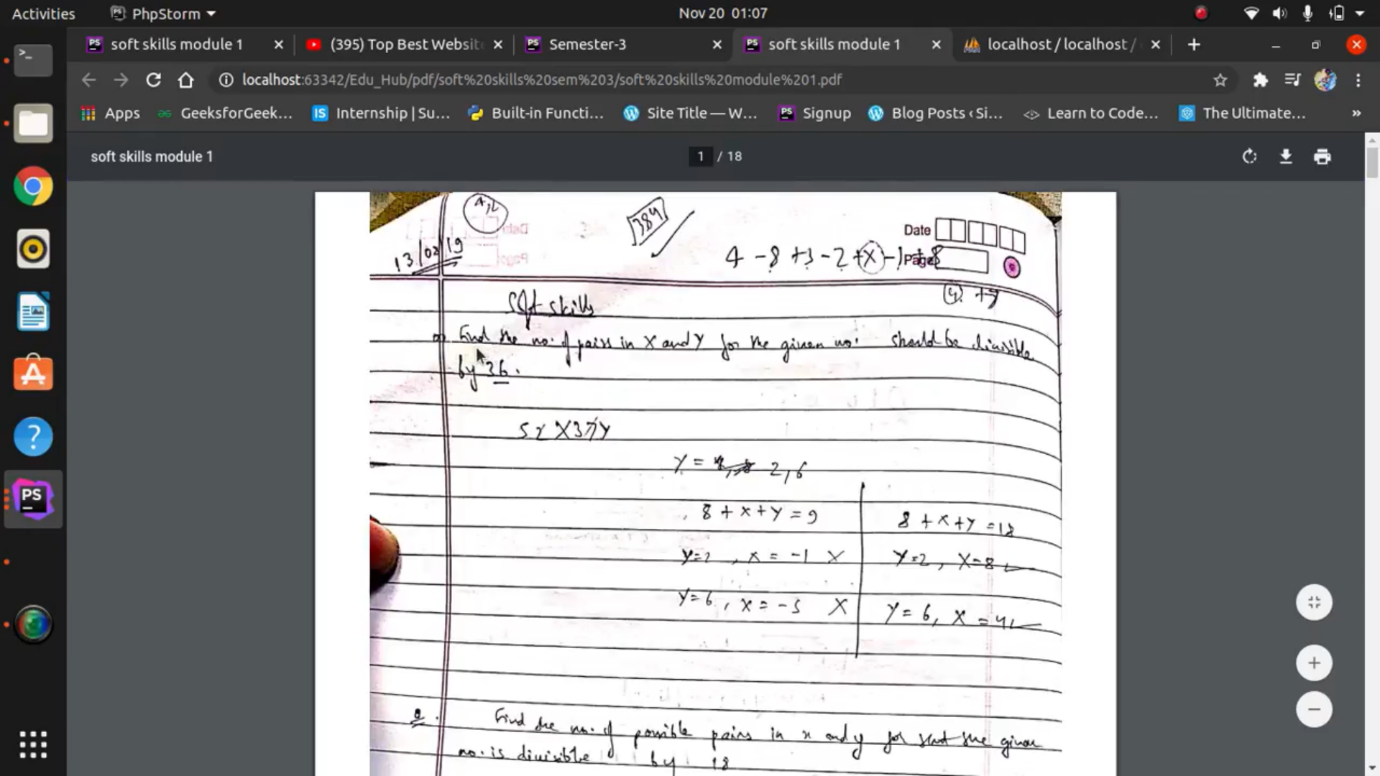 Activities PhpStorm Nov 20 01:07
soft skills module 1 (395) Top Best Website Semester-3 soft skills module 1 localhost / localhost /
localhost:63342/Edu_Hub/pdf/soft%20skills%20sem%203/soft%20skills%20module%201.pdf
Apps GeeksforGeek... Internship | Su... Built-in Functi... Site Title — W... Signup Blog Posts ‹ Si... Learn to Code... The Ultimate... »
soft skills module 1 1 / 18
4,2
384
Date
13/02/19
4 - 8 + 3 - 2 + X - + 8
Page
Soft skills
Find the no. of pairs in X and Y for the given no. should be divisible
by 36.
Y = 2, 6
8 + x + y = 9 8 + x + y = 18
y=2, x = -1 X Y=2, X=8
Y=6, x = -5 X Y=6, X = 4
Q. Find the no. of possible pairs in x and y for the given
no. is divisible by 18